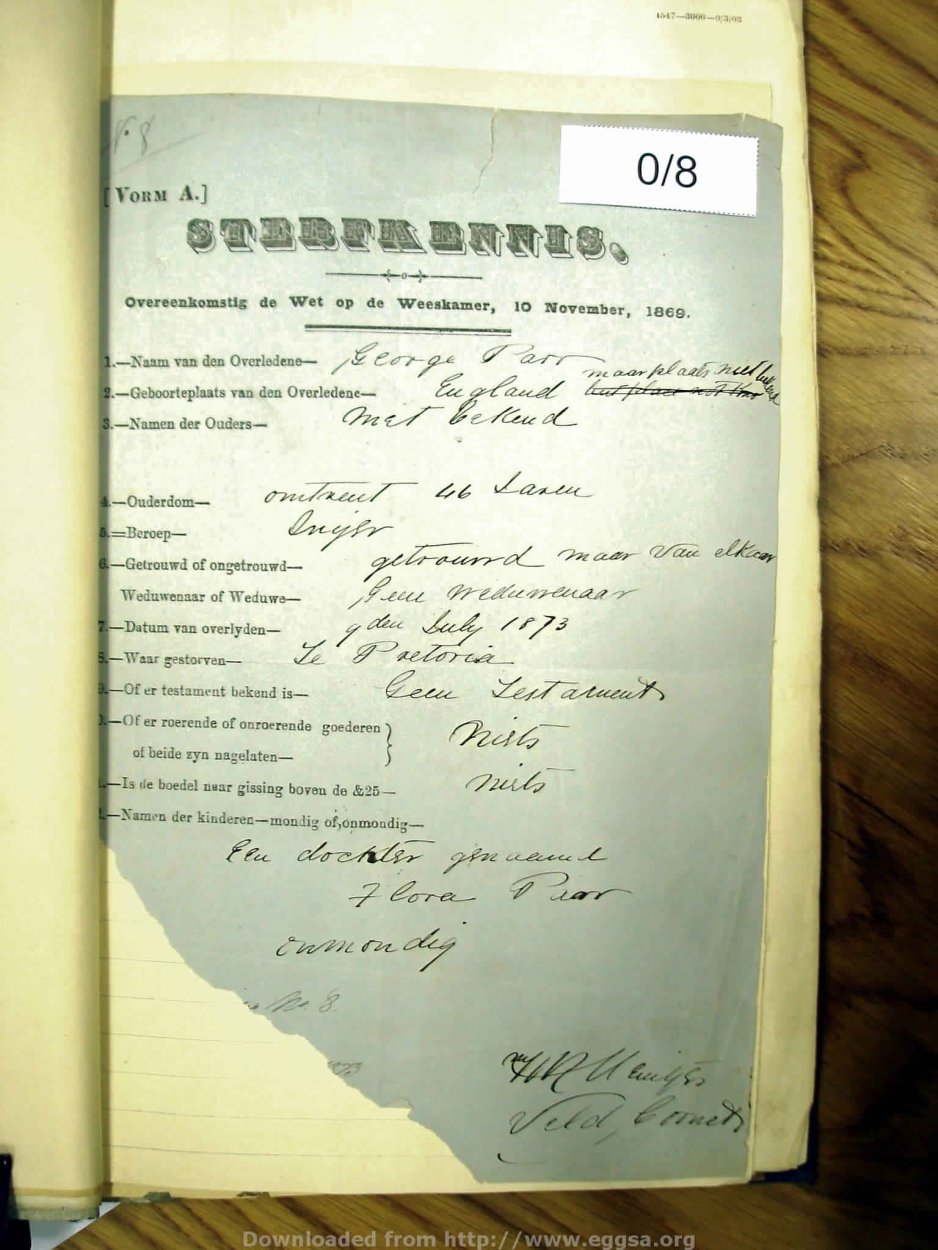 4547—3000—9/3/03
No. 8
0/8
[VORM A.]
STERFKENNIS.
Overeenkomstig de Wet op de Weeskamer, 10 November, 1869.
1.—Naam van den Overledene— George Parr
maar plaats niet bekend
2.—Geboorteplaats van den Overledene— England but place not know
3.—Namen der Ouders— niet bekend
4.—Ouderdom— omtrent 46 Jaren
5.—Beroep—
6.—Getrouwd of ongetrouwd— getrouwd maar van elkaar
Weduwenaar of Weduwe— Geen Weduwenaar
7.—Datum van overlyden— 9den July 1873
8.—Waar gestorven— Te Pretoria
9.—Of er testament bekend is— Geen Testament
—Of er roerende of onroerende goederen } Niets
of beide zyn nagelaten—
—Is de boedel naar gissing boven de &25— Niets
—Namen der kinderen—mondig of,onmondig—
Een dochter genaamd
Flora Parr
onmondig
No. 8.
1873
Veld Cornet
Downloaded from http://www.eggsa.org